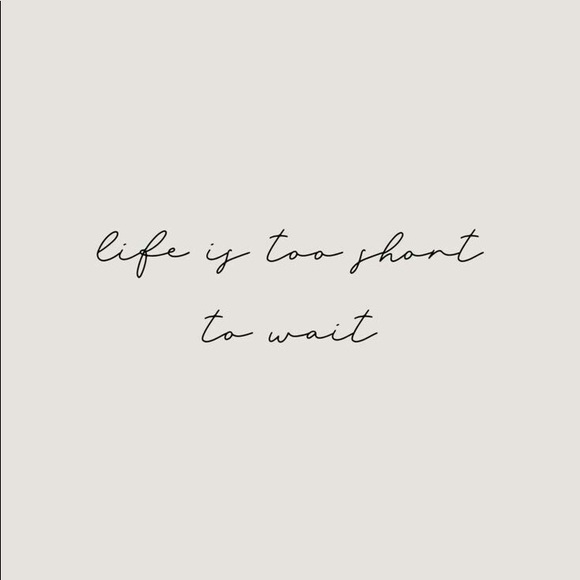 life is too short
to wait